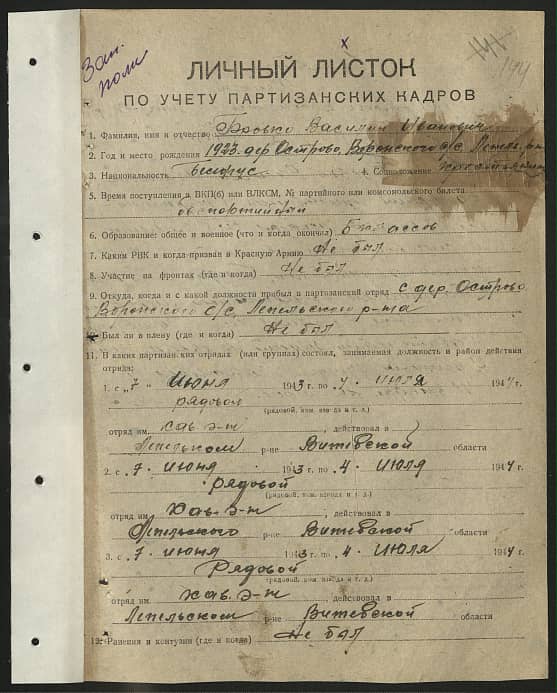 Зап.
поли
144
ЛИЧНЫЙ ЛИСТОК
ПО УЧЕТУ ПАРТИЗАНСКИХ КАДРОВ
1. Фамилия, имя и отчество Василий Иванович
2. Год и место рождения 1923 дер Острово, Воронского с/с Лепель. р-н
3. Национальность белорус 4. Соцположение крестьянин
5. Время поступления в ВКП(б) или ВЛКСМ, № партийного или комсомольского билета
6. Образование: общее и военное (что и когда окончил) 5 классов
7. Каким РВК и когда призван в Красную Армию Не был
8. Участие на фронтах (где и когда) Не был
9. Откуда, когда и с какой должности прибыл в партизанский отряд с дер. Острово
Воронского с/с, Лепельского р-на
Был ли в плену (где и когда) Не был
11. В каких партизанских отрядах (или группах) состоял, занимаемая должность и район действия
отряда:
1. с „7 " июня 1943 г. по июля 1944 г.
рядовой
(рядовой, ком. взвода и т. д.)
отряд им. кав. э-н , действовал в
Лепельском р-не Витебской области
2. с 7. июня 1943 г. по 4. июля 1944 г.
рядовой
(рядовой, ком. взвода и т. д.)
отряд им. кав. э-н , действовал в
Лепельского р-не Витебской области
3. с 7. июня 1943 г. по 4. июля 1944 г.
Рядовой
(рядовой, ком. взвода и т. д.)
отряд им. кав. э-н , действовал в
Лепельском р-не Витебской области
12. Ранения и контузии (где и когда) Не был